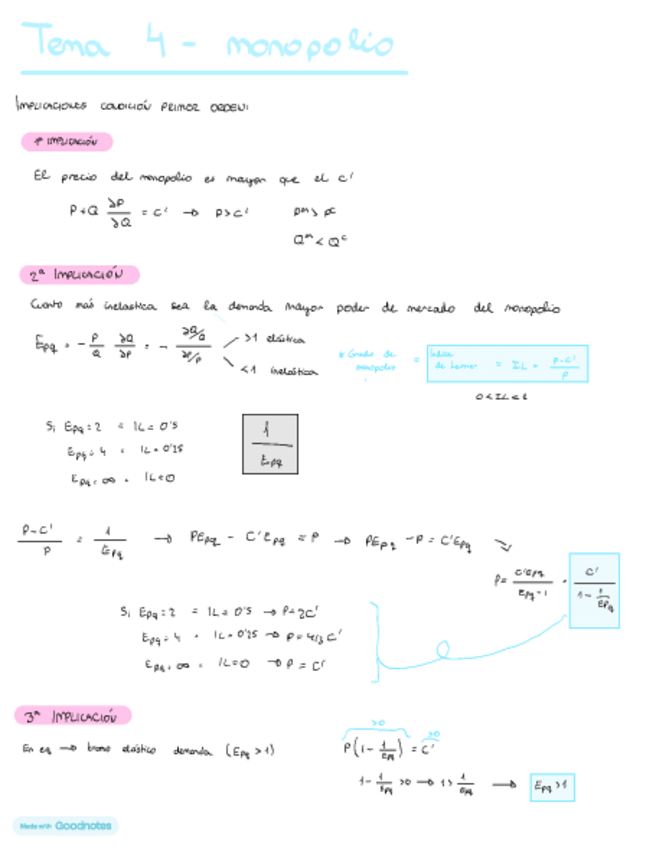 Tema 4 - monopolio
IMPLICACIONES CONDICIÓN PRIMER ORDEN:
1ª IMPLICACIÓN
El precio del monopolio es mayor que el C'
P+Q ∂P/∂Q = C' → P>C' pᵐ> pᶜ
Qᵐ < Qᶜ
2ª IMPLICACIÓN
Cuanto más inelastica sea la demanda mayor poder de mercado del monopolio
Epq = - P/Q ∂Q/∂P = - ∂Q/Q / ∂P/P >1 elástica
<1 inelástica
* Grado de monopolio = Índice de Lerner = IL = P-C'/P
0<IL<1
Si Epq = 2 = IL = 0'5
Epq = 4 = IL = 0'25
Epq = ∞ = IL=0
1/Epq
P-C'/P = 1/Epq → PEpq - C'Epq = P → PEpq - P = C'Epq
P = C'Epq/Epq-1 = C'/1-1/Epq
Si Epq = 2 = IL = 0'5 → P=2C'
Epq = 4 = IL = 0'25 → P=4/3 C'
Epq = ∞ = IL=0 → P = C'
3ª IMPLICACIÓN
En eq → tramo elástico demanda (Epq > 1)
>0 >0
P(1 - 1/Epq) = C'
1 - 1/Epq >0 → 1 > 1/Epq → Epq >1
Made with Goodnotes